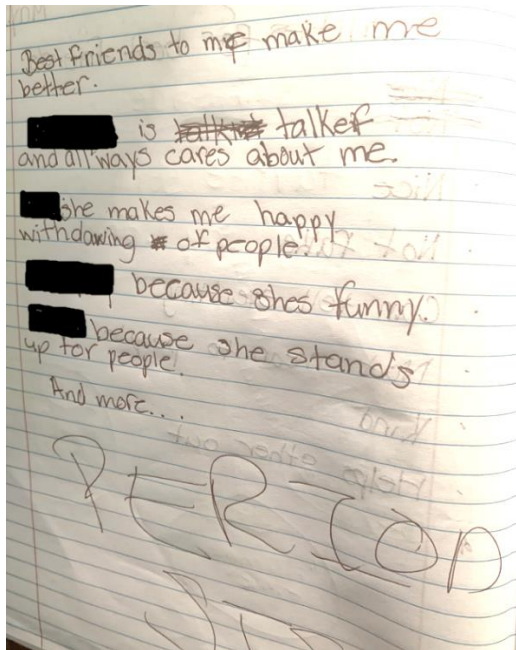 Best friends to me make me
better.
is talker
and all ways cares about me.
she makes me happy
with dawing of people.
because shes funny.
because she stands
up for people.
And more...
PERIOD